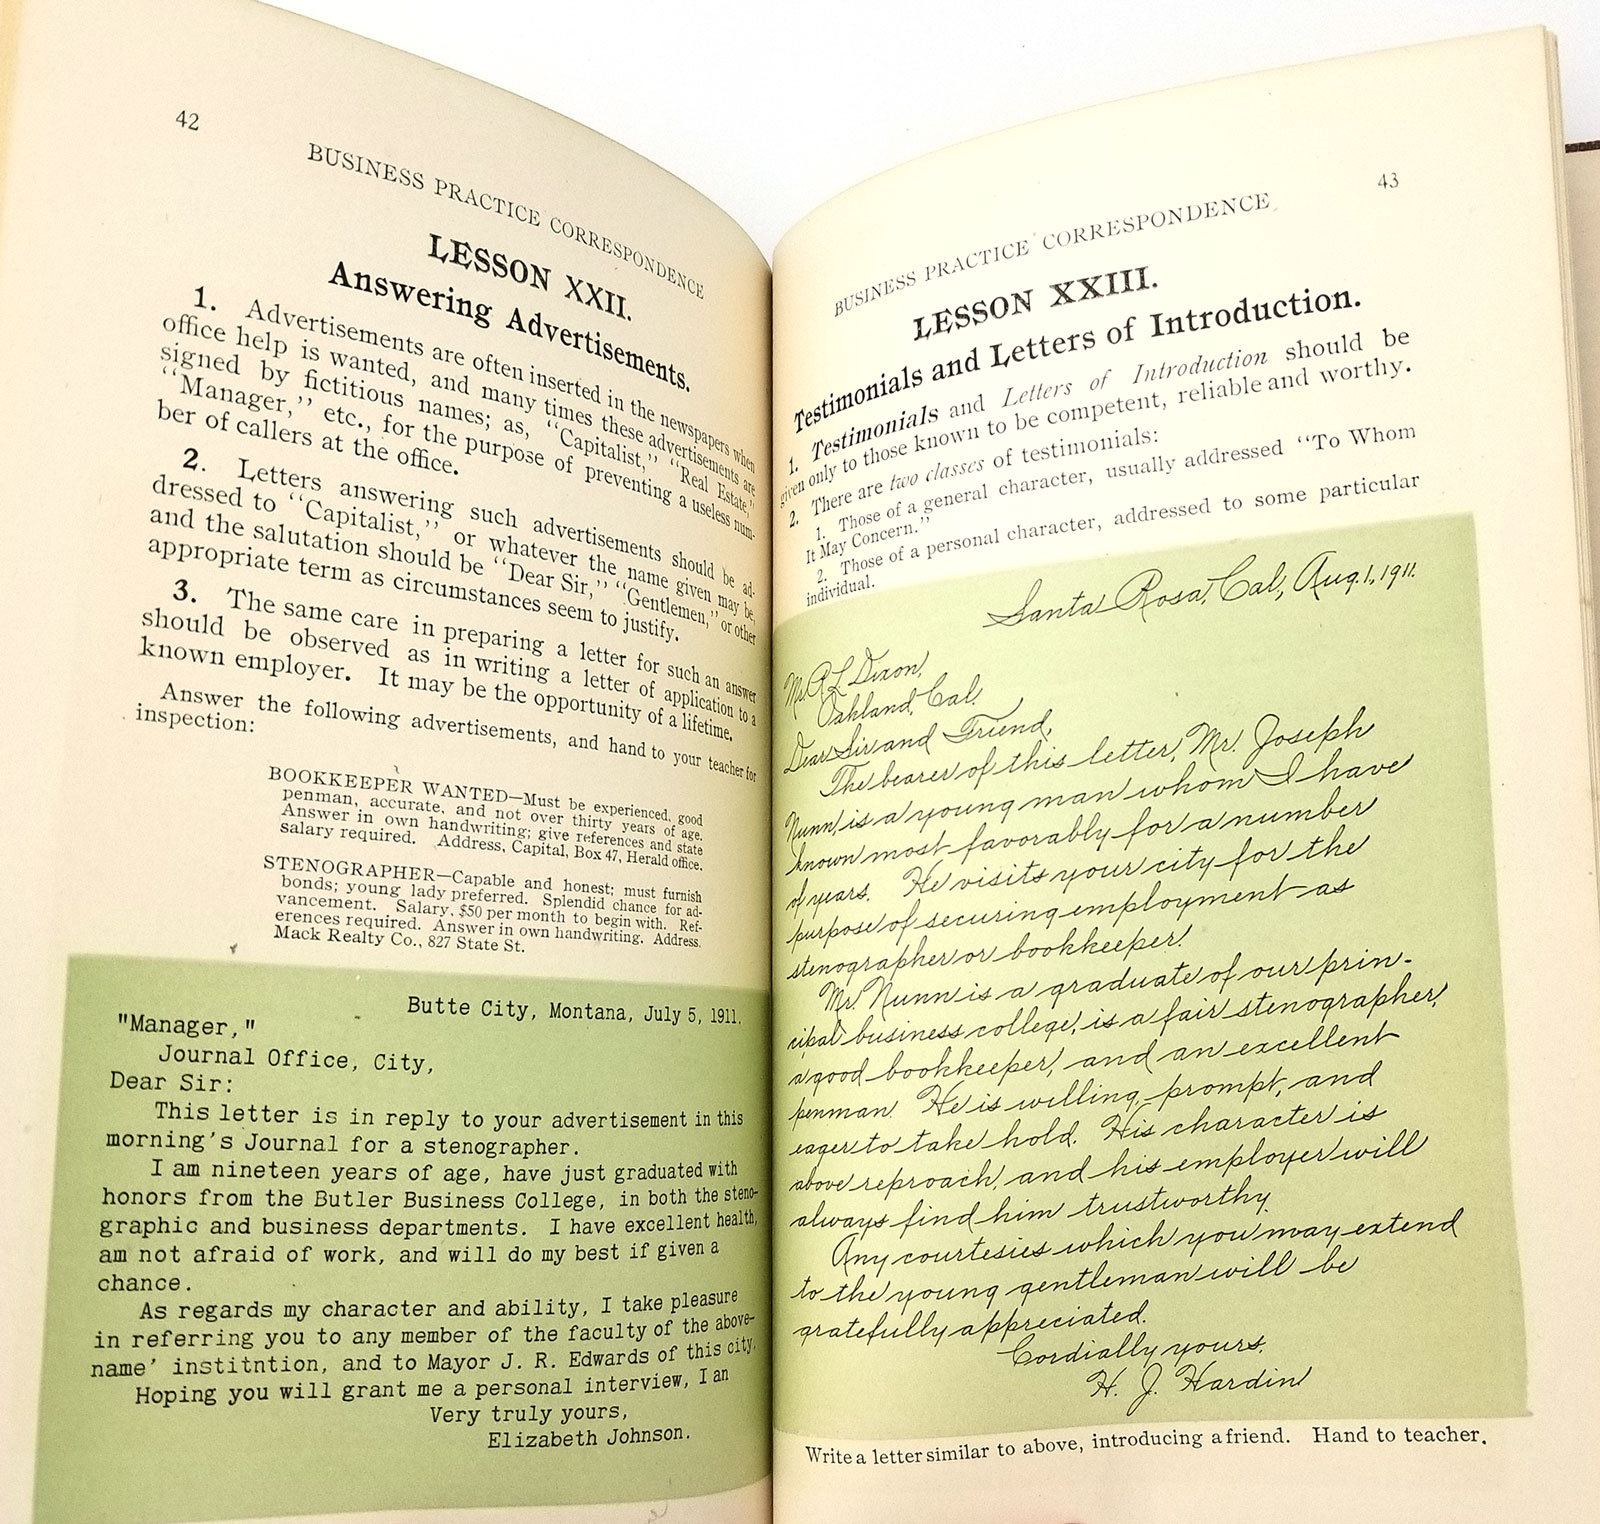 42
BUSINESS PRACTICE CORRESPONDENCE
LESSON XXII.
Answering Advertisements.
1. Advertisements are often inserted in the newspapers when
office help is wanted, and many times these advertisements are
signed by fictitious names; as, "Capitalist," "Real Estate,"
"Manager," etc., for the purpose of preventing a useless num-
ber of callers at the office.
2. Letters answering such advertisements should be ad-
dressed to "Capitalist," or whatever the name given may be,
and the salutation should be "Dear Sir," "Gentlemen," or other
appropriate term as circumstances seem to justify.
3. The same care in preparing a letter for such an answer
should be observed as in writing a letter of application to a
known employer. It may be the opportunity of a lifetime.
Answer the following advertisements, and hand to your teacher for
inspection:
BOOKKEEPER WANTED—Must be experienced, good
penman, accurate, and not over thirty years of age.
Answer in own handwriting; give references and state
salary required. Address, Capital, Box 47, Herald office.
STENOGRAPHER—Capable and honest; must furnish
bonds; young lady preferred. Splendid chance for ad-
vancement. Salary, $50 per month to begin with. Ref-
erences required. Answer in own handwriting. Address
Mack Realty Co., 827 State St.
Butte City, Montana, July 5, 1911.
"Manager,"
Journal Office, City,
Dear Sir:
This letter is in reply to your advertisement in this
morning's Journal for a stenographer.
I am nineteen years of age, have just graduated with
honors from the Butler Business College, in both the steno-
graphic and business departments. I have excellent health,
am not afraid of work, and will do my best if given a
chance.
As regards my character and ability, I take pleasure
in referring you to any member of the faculty of the above-
name' institntion, and to Mayor J. R. Edwards of this city.
Hoping you will grant me a personal interview, I an
Very truly yours,
Elizabeth Johnson.
43
BUSINESS PRACTICE CORRESPONDENCE
LESSON XXIII.
Testimonials and Letters of Introduction.
1. Testimonials and Letters of Introduction should be
given only to those known to be competent, reliable and worthy.
2. There are two classes of testimonials:
1. Those of a general character, usually addressed "To Whom
It May Concern."
2. Those of a personal character, addressed to some particular
individual.
Santa Rosa, Cal., Aug. 1, 1911.
Mr. A. L. Dixon,
Oakland, Cal.
Dear Sir and Friend,
The bearer of this letter, Mr. Joseph
Nunn, is a young man whom I have
known most favorably for a number
of years. He visits your city for the
purpose of securing employment as
stenographer or bookkeeper.
Mr. Nunn is a graduate of our prin-
cipal business college, is a fair stenographer,
a good bookkeeper, and an excellent
penman. He is willing, prompt, and
eager to take hold. His character is
above reproach, and his employer will
always find him trustworthy.
Any courtesies which you may extend
to the young gentleman will be
gratefully appreciated.
Cordially yours,
H. J. Hardin
Write a letter similar to above, introducing a friend. Hand to teacher.